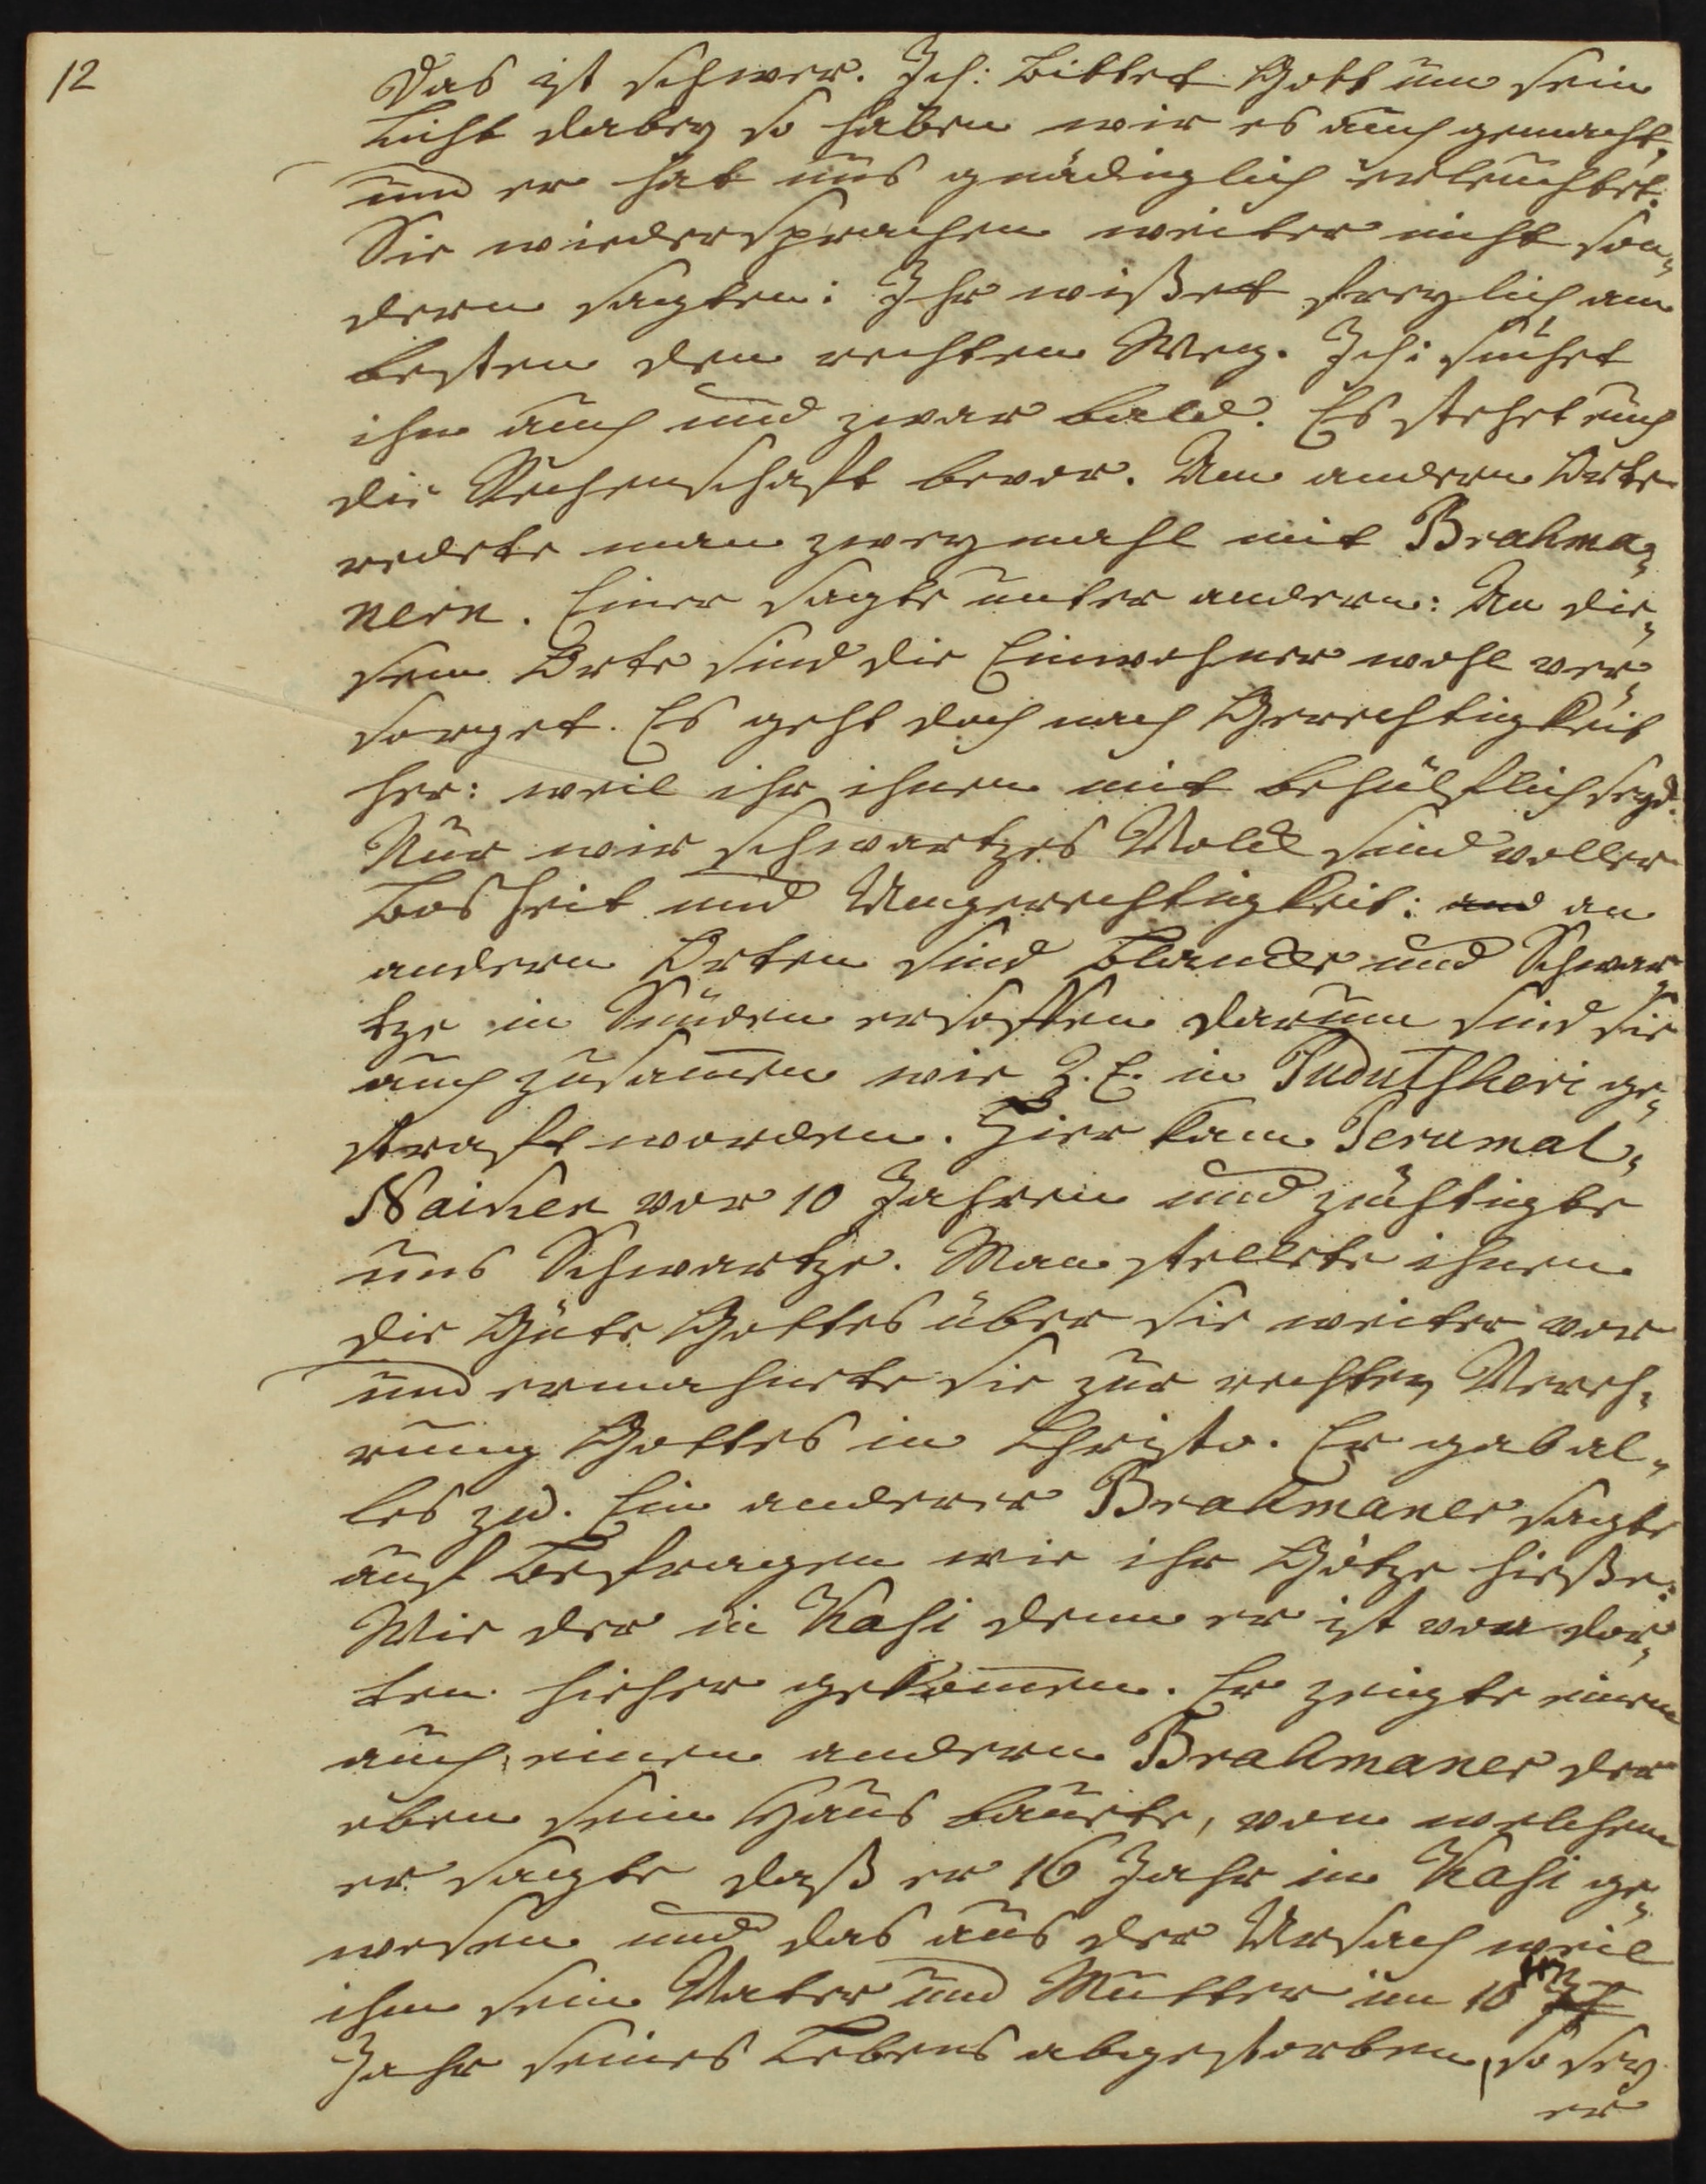 12
Das ist schwer. Ich: Bittet Gott um sein
Licht dabey so haben wir es auch gemacht,
und er hat uns gnädiglich erleuchtet.
Sie wiedersprachen weiter nicht son„
dern sagten: Ihr wißet freylich am
besten den rechten Weg. Ich: suchet
ihn auch und zwar bald. Es stehet euch
die Rechenschaft bevor. Am andern Orte
redete man zweymahl mit Brahma„
nern. Einer sagte unter andern: An die„
sem Orte sind die Einwohner wohl ver„
sorget. Es geht doch nach Gerechtigkeit
her: weil ihr ihnen mit behülflich seyd.
Nur wir schwartzes Volck sind voller
Bosheit und Ungerechtigkeit: und an
andern Orten sind Blancke und Schwar„
tze in Sünden ersoffen darum sind sie
auch zusam̄en wie Z. E. in Pudutsheri ge„
straft worden. Hier kam Perumal„
Naiken vor 10 Jahren und züchtigte
uns Schwartze. Man stellete ihnen
die Güte Gottes über sie weiter vor
und ermahnete sie zur rechten Vereh„
rung Gottes in Christo. Er gab al„
les zu. Ein anderer Brahmaner sagte
auf Befragen wie ihr Götze hieße:
Wie der in Kasi denn er ist von dor„
ten hieher gekom̄en. Er zeigte einem
auch einen andern Brahmaner der
eben sein Haus bauete, von welchem
er sagte daß er 16 Jahr in Kasi ge„
wesen und das aus der Ursach weil
ihm sein Vater und Mutter im 10
Jahr seines Lebens abgestorben, so sey
er